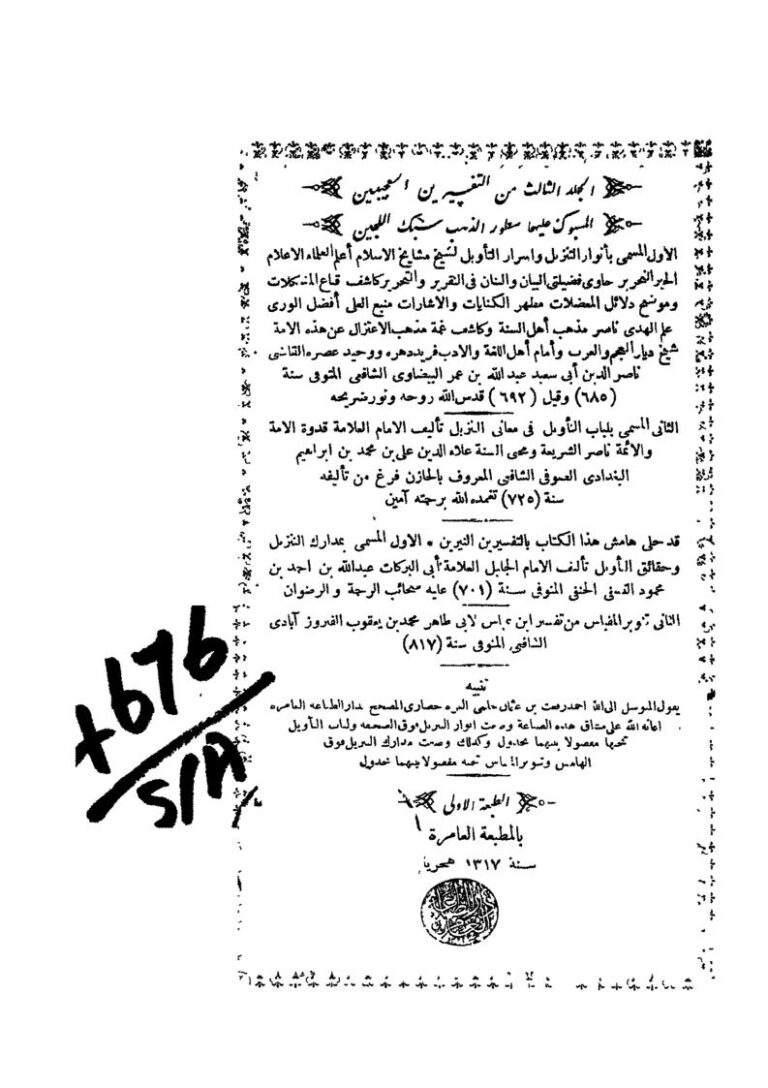 الجلد الثالث من التفسيرين العجيبين
المسبوك عليهما سطور الذهب شبك اللجين
الاول المسمى بأنوار التنزيل واسرار التأويل لشيخ مشايخ الاسلام أعلم العلماء الاعلام
الحبر النحرير حاوى فضيلتى البيان والبنان فى التقرير والتحرير كاشف قناع المشكلات
وموضح دلائل المعضلات مظهر الكنايات والاشارات منبع العلى أفضل الورى
علم الهدى ناصر مذهب أهل السنة وكاشف غمة مذهب الاعتزال عن هذه الامة
شيخ ديار العجم والعرب وأمام أهل اللغة والادب فريد دهره ووحيد عصره القاضى
ناصر الدين أبى سعيد عبد الله بن عمر البيضاوى الشافعى المتوفى سنة
(٦٨٥) وقيل (٦٩٢) قدس الله روحه ونور ضريحه
الثانى المسمى بلباب التأويل فى معانى التنزيل تأليف الامام العلامة قدوة الامة
والائمة ناصر الشريعة ومحى السنة علاء الدين على بن محمد بن ابراهيم
البغدادى الصوفى الشافعى المعروف بالخازن فرغ من تأليفه
سنة (٧٢٥) تغمده الله برحمته آمين
قد حلى هامش هذا الكتاب بالتفسيرين النيرين * الاول المسمى بمدارك التنزيل
وحقائق التأويل تأليف الامام الجليل العلامة أبى البركات عبد الله بن احمد بن
محمود النسفى الحنفى المتوفى سنة (٧٠١) عليه سحائب الرحمة والرضوان
الثانى تنوير المقباس من تفسير ابن عباس لابى طاهر محمد بن يعقوب الفيروز آبادى
الشافعى المتوفى سنة (٨١٧)
تنبيه
يقول المتوسل الى الله احمد رفعت بن عثمان حلمى القره حصارى المصحح بدار الطباعه العامره
اعانه الله على مشاق هذه الصناعة وضعت انوار التنزيل فوق الصحيفه ولباب التأويل
تحتها مفصولا بينهما بجدول وكذلك وضعت مدارك التنزيل فوق
الهامش وتنوير المقباس تحته مفصولا بينهما بجدول
الطبعة الاولى
بالمطبعة العامرة
سنة ١٣١٧ هجريه
+676
S/A